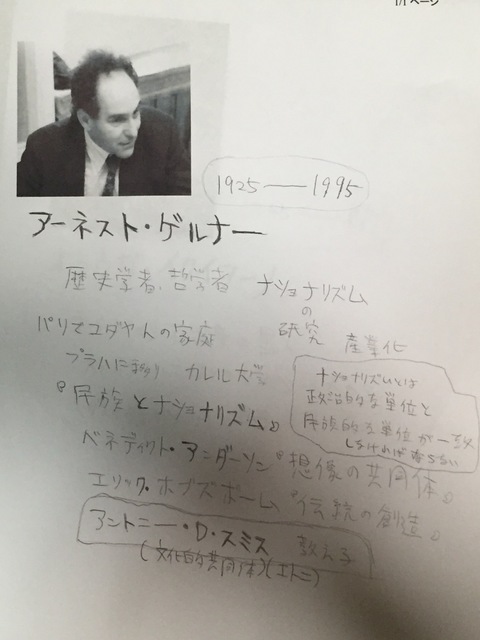 1/1 ページ
1925 — 1995
アーネスト・ゲルナー
歴史学者、哲学者 ナショナリズム
の
研究
パリでユダヤ人の家庭
産業化
プラハに移り カレル大学
ナショナリズムとは
政治的な単位と
民族的な単位が一致
しなければならない
『民族とナショナリズム』
ベネディクト・アンダーソン『想像の共同体』
エリック・ホブズボーム『伝統の創造』
アントニー・D・スミス 教え子
(文化的共同体)(エトニ)